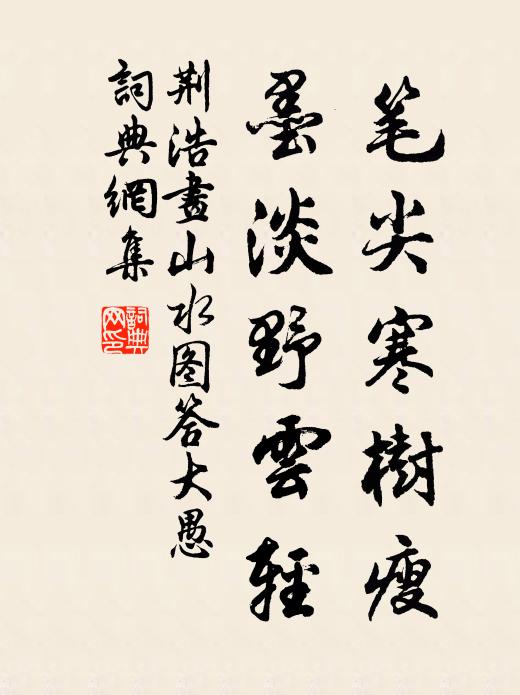 笔尖寒樹瘦
墨淡野雲輕
荆浩畫山水图答大愚
詞典網集
詞典网印